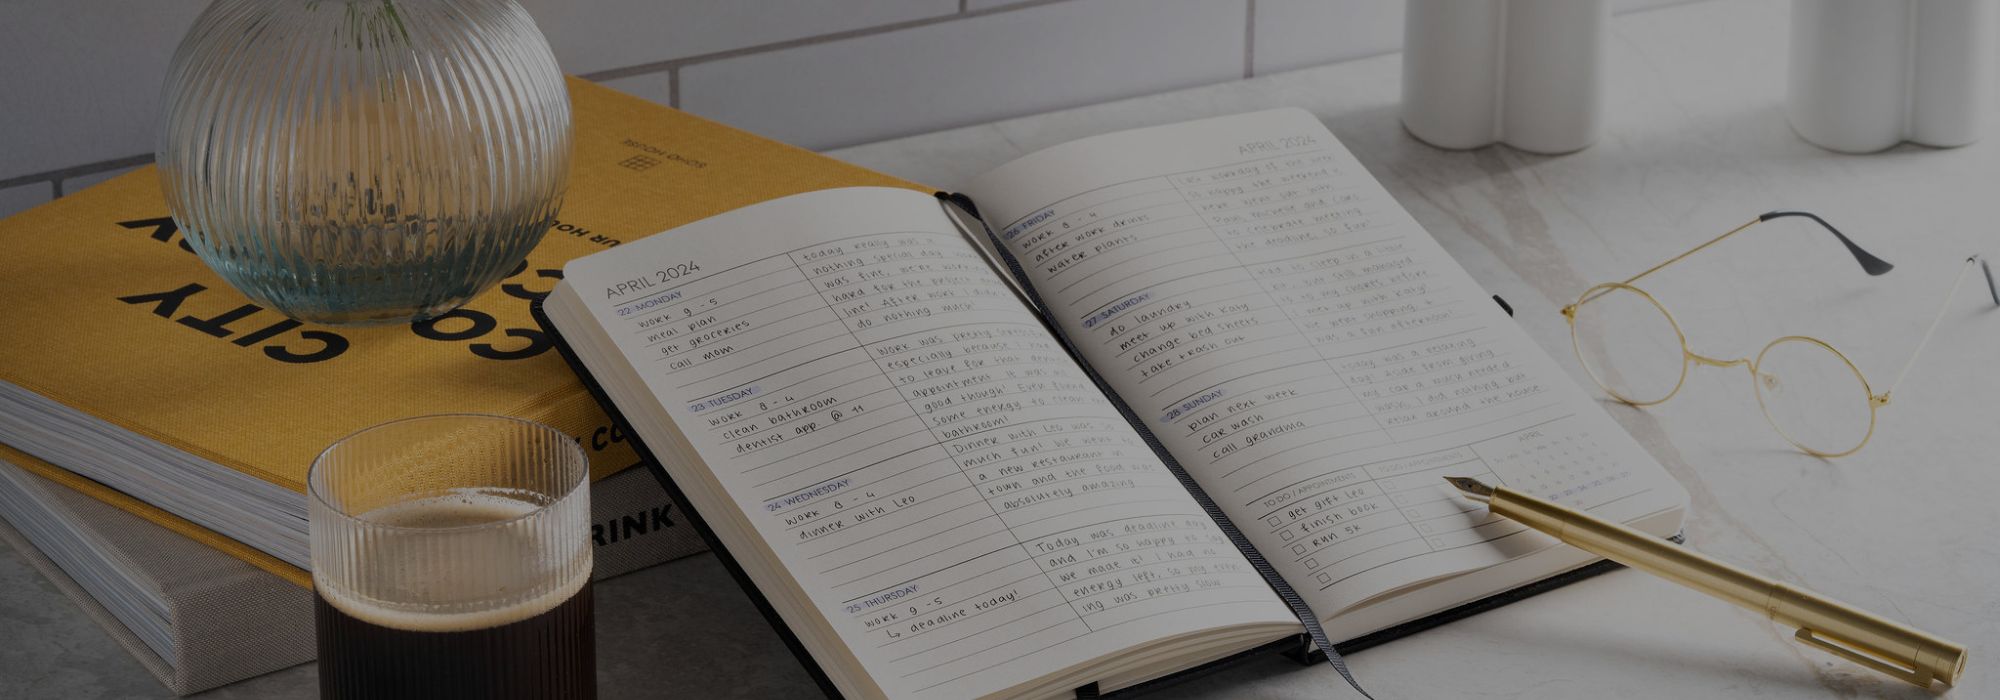 SOHO HOUSE
UR HO
CITY
CO
CO
RINK
APRIL 2024
22 MONDAY
work 9 - 5
meal plan
get groceries
call mom
today really was a
nothing special day
was fine, we're
hard for the project
line! After work I didn't
do nothing much
23 TUESDAY
work 8 - 4
clean bathroom
dentist app. @ 11
Work was pretty
especially because I had
to leave for that
appointment. It was
good though! Even
some energy to clean
bathroom!
24 WEDNESDAY
work 8 - 4
dinner with Leo
Dinner with Leo was so
much fun! We went to
a new restaurant in
town and the food was
absolutely amazing
25 THURSDAY
work 9 - 5
↳ deadline today!
Today was deadline day
and I'm so happy to say
we made it! I had no
energy left, so my even-
ing was pretty slow
APRIL 2024
26 FRIDAY
work 8 - 4
after work drinks
water plants
Last workday of the week
so happy the weekend is
here. Went out with
to celebrate meeting
the deadline, so fun!
27 SATURDAY
do laundry
meet up with Katy
change bed sheets
take trash out
Had to sleep in a little
bit, but still managed
to my chores before
I met up with Katy!
We went shopping, it
was a fun afternoon!
28 SUNDAY
plan next week
car wash
call grandma
today was a relaxing
day! Aside from giving
my car a much needed
wash, did nothing but
relax around the house
TO DO / APPOINTMENTS
get gift Leo
finish book
run 5k
TO DO / APPOINTMENTS
APRIL